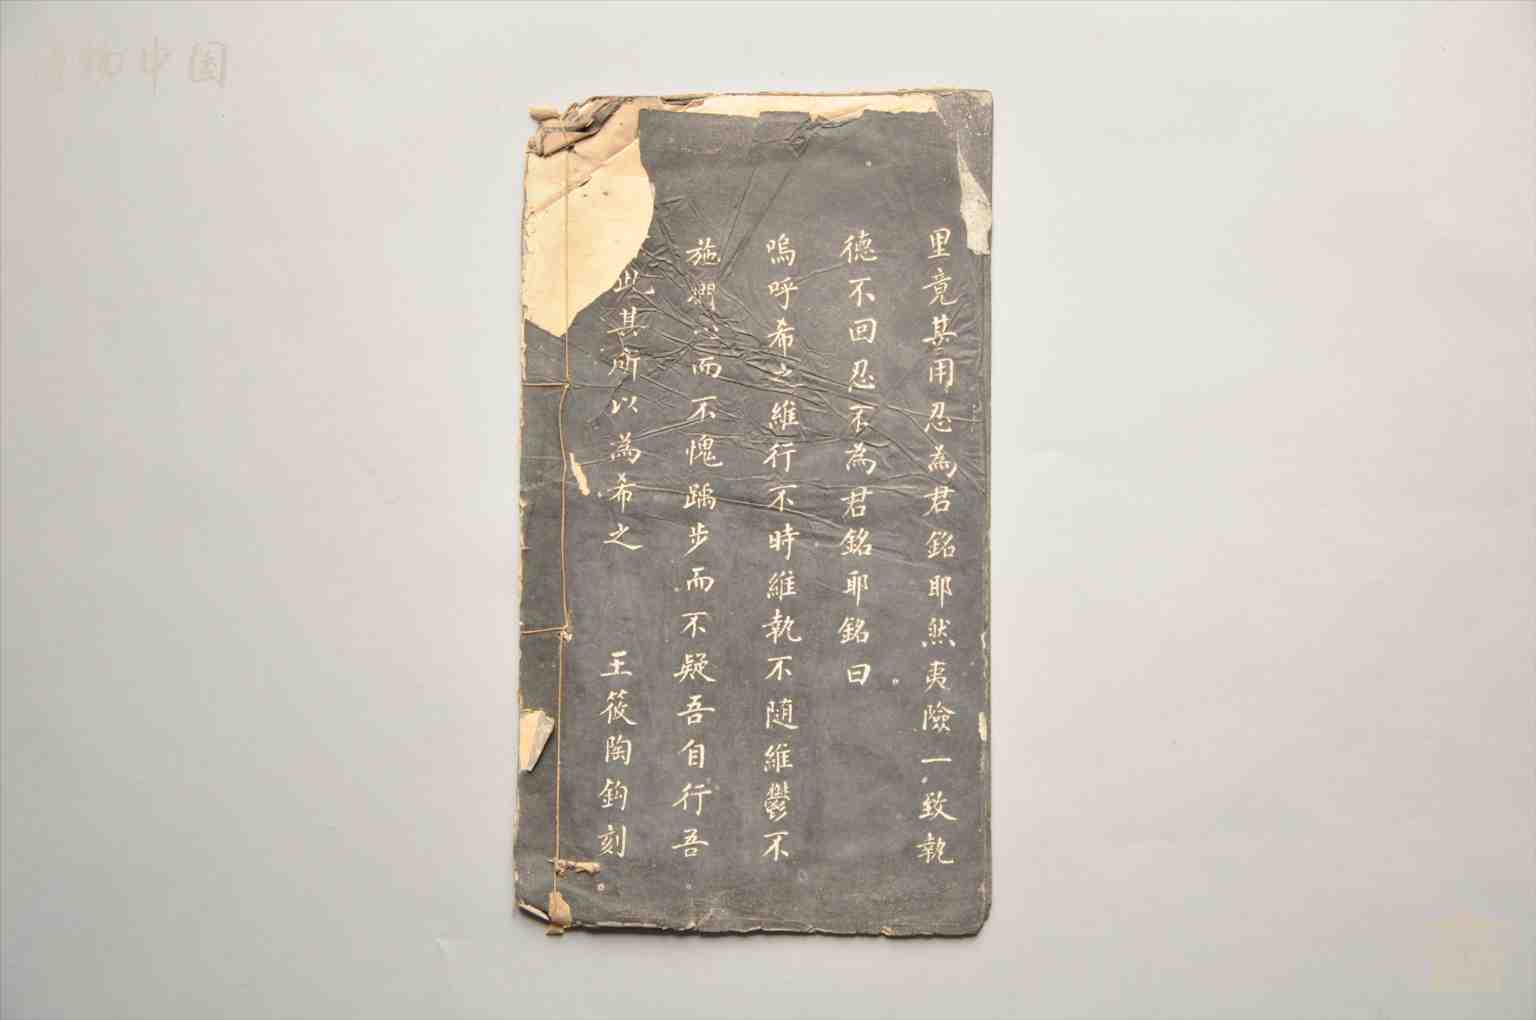 里竟其用忍為君銘耶然夷險一致執
德不回忍不為君銘耶銘曰
嗚呼希之維行不時維執不隨維鬱不
施 以而不愧踽步而不疑吾自行吾
此其所以為希之
王筱陶鈎刻
中国